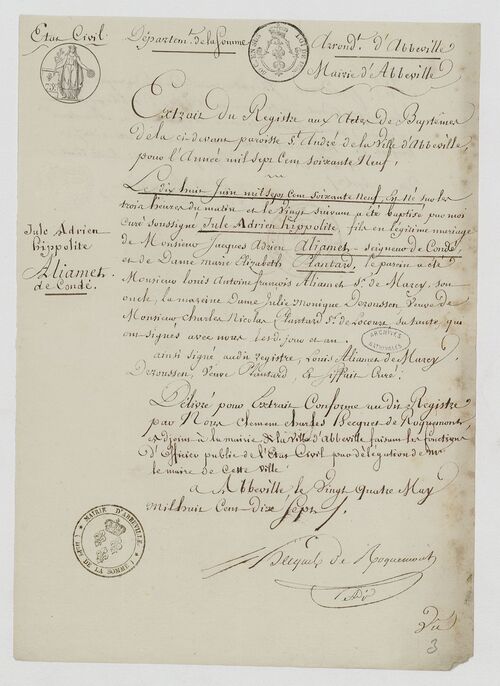 Etat Civil. Départemt. de la Somme Arrondt. d'Abbeville
Mairie d'Abbeville
Extrait du Registre aux Actes de Baptêmes
de la ci devant paroisse St. André de la Ville d'Abbeville,
pour l'Année mil sept Cent soixante Neuf.
Le dix huit Juin mil sept Cent soixante Neuf, Est Né sur les
trois heures du matin et le Vingt suivant a été baptisé par moi
Curé soussigné Jule Adrien hippolite, fils en légitime mariage
de Monsieur Jacques Adrien Aliamet - seigneur de Condé,
et de Dame marie Elizabeth Plantard. Le parein a été
Monsieur Louis Antoine françois Aliamet Sr. de Marey, son
oncle, la mareine Dame Julie Monique Deroussen, Veuve de
Monsieur Charles Nicolas Plantard Sr. de Locourt sa tante, qui
ont signés avec nous les dis jour et an.
ainsi signé audit registre, Louis Aliamet de Marey
Deroussen, Veuve Plantard, Et Curé.
Jule Adrien
hippolite
Aliamet
de Condé.
Délivré pour Extrait Conforme au dit Registre
par Nous Clement Charles Becquet de Roquemont,
adjoint à la mairie de la Ville d'abbeville faisant les fonctions
d'Officier public de l'Etat Civil par délégation de mr.
le maire de Cette Ville
a Abbeville, le Vingt quatre May
mil huit Cent dix Sept /.
Becquet de Roquemont
adj
ARCHIVES
NATIONALES
MAIRIE D'ABBEVILLE
( DEPT DE LA SOMME )
3